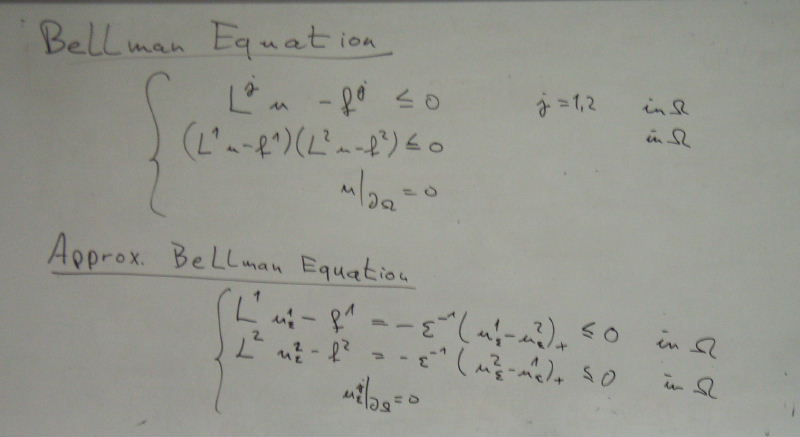 Bellman Equation
L^j u - f^j ≤ 0 j = 1,2 in Ω
(L^1 u - f^1)(L^2 u - f^2) ≤ 0 in Ω
u|_∂Ω = 0
Approx. Bellman Equation
L^1 u_ε^1 - f^1 = - ε^-1 (u_ε^1 - u_ε^2)_+ ≤ 0 in Ω
L^2 u_ε^2 - f^2 = - ε^-1 (u_ε^2 - u_ε^1)_+ ≤ 0 in Ω
u_ε^j|_∂Ω = 0